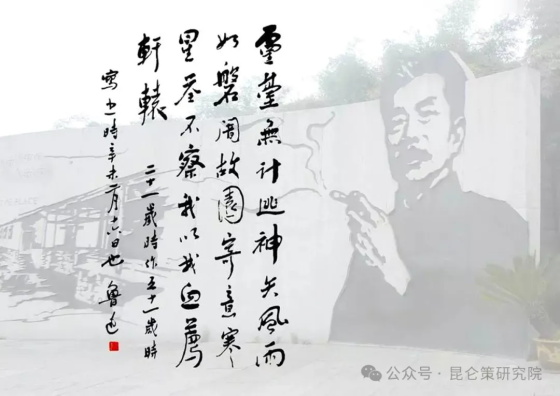 靈臺無計逃神矢風雨
如磐闇故園寄意寒
星荃不察我以我血薦
軒轅
二十一歲時作五十一歲時
寫之時辛未二月十六日也 魯迅
公众号 · 昆仑策研究院